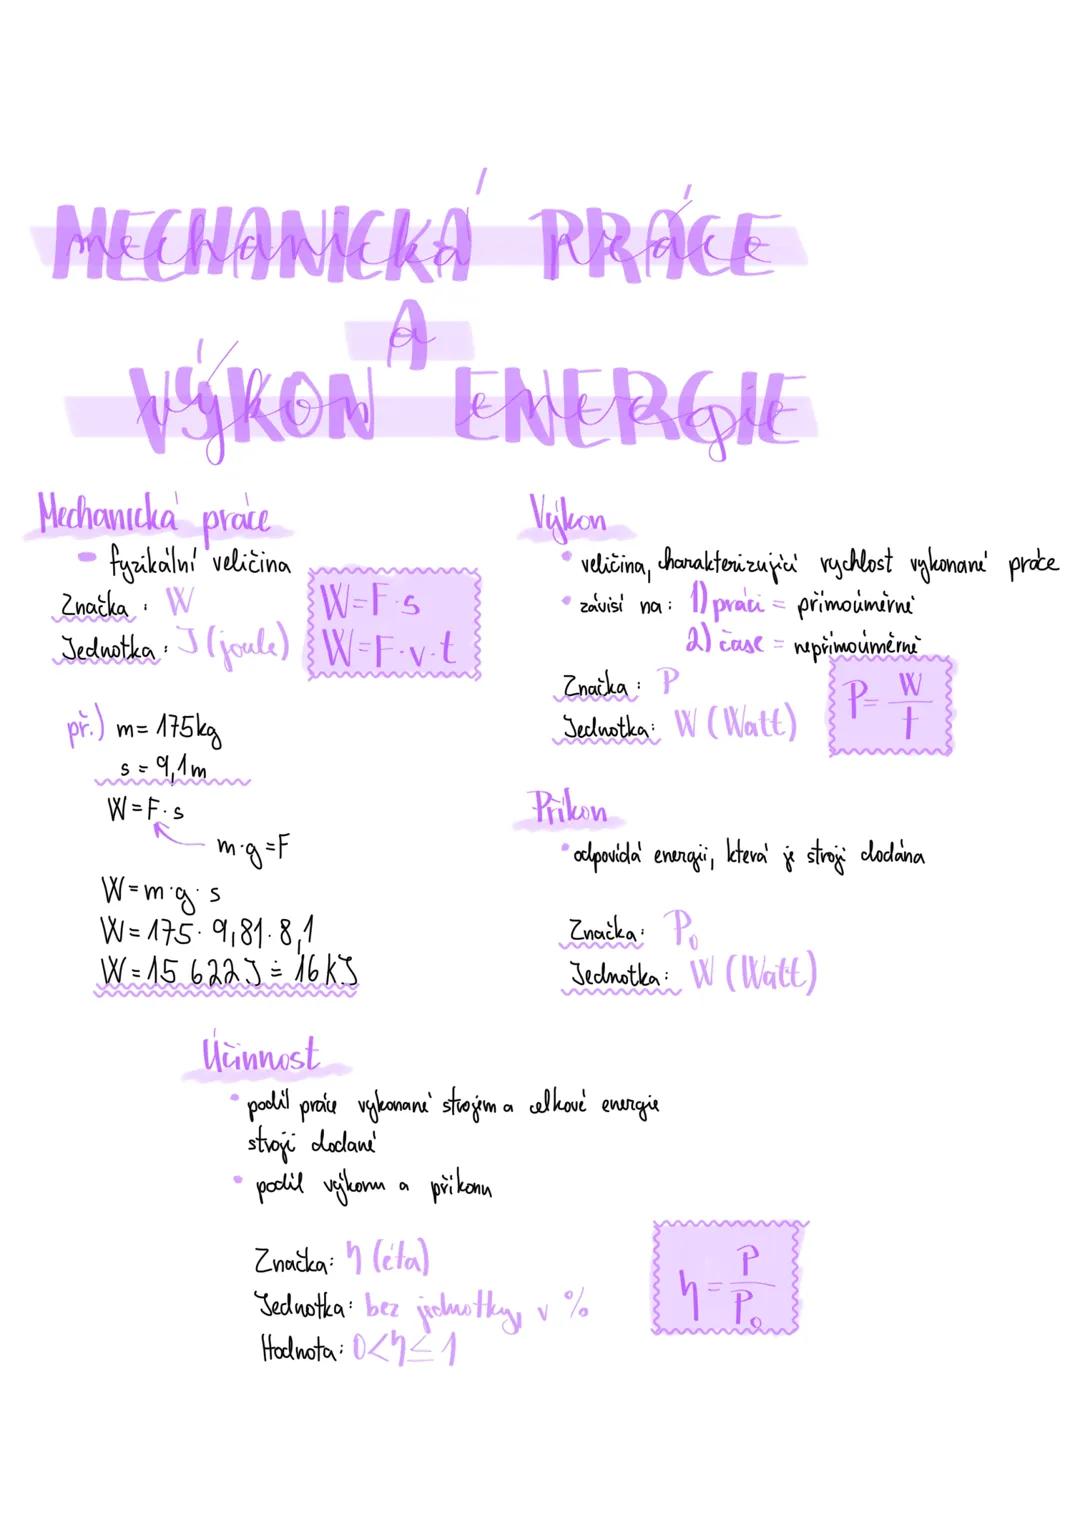 MECHANICKÁ PRÁCE
mechanická práce
A
a
VÝKON ENERGIE
výkon energie
Mechanická práce
fyzikální veličina
Značka: W
Jednotka: J (joule)
W=F·s
W=F·v·t
př.) m= 175kg
s = 9,1m
W=F·s
m·g=F
W=m·g·s
W=175·9,81·8,1
W=15 622J ≐ 16kJ
Výkon
• veličina, charakterizující rychlost vykonané práce
• závisí na: 1) práci = přímoúměrné
2) čase = nepřímoúměrně
Značka: P
Jednotka: W (Watt)
P= W/t
Příkon
• odpovídá energii, která je stroji dodána
Značka: P₀
Jednotka: W (Watt)
Účinnost
• podíl práce vykonané strojem a celkové energie
stroji dodané
• podíl výkonu a příkonu
Značka: η (éta)
Jednotka: bez jednotky, v %
Hodnota: 0<η≤1
η=P/P₀